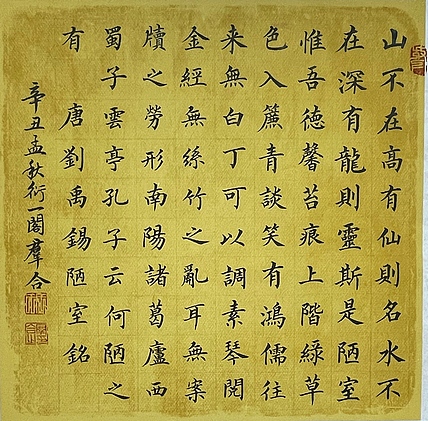 山不在高有仙則名水不
在深有龍則靈斯是陋室
惟吾徳馨苔痕上階綠草
色入簾青談笑有鴻儒往
来無白丁可以調素琴閱
金經無絲竹之亂耳無案
牘之勞形南陽諸葛廬西
蜀子雲亭孔子云何陋之
有 唐劉禹錫陋室銘
辛丑孟秋衍一閣羣合